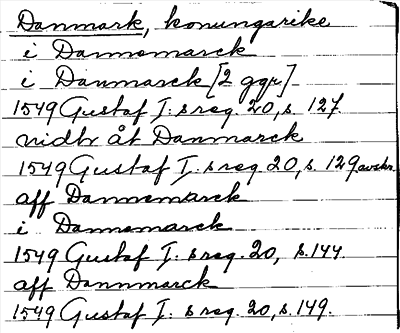 Danmark, konungarike
i Dannemarck
i Danmarck [2 ggr]
1549 Gustaf I: s reg. 20, s. 127.
vidtr åt Danmarck
1549 Gustaf I: s reg. 20, s. 129 avskr.
aff Dannemarck
i Dannemarck
1549 Gustaf I: s reg. 20, s. 144
aff Dannmarck
1549 Gustaf I: s reg. 20, s. 149.